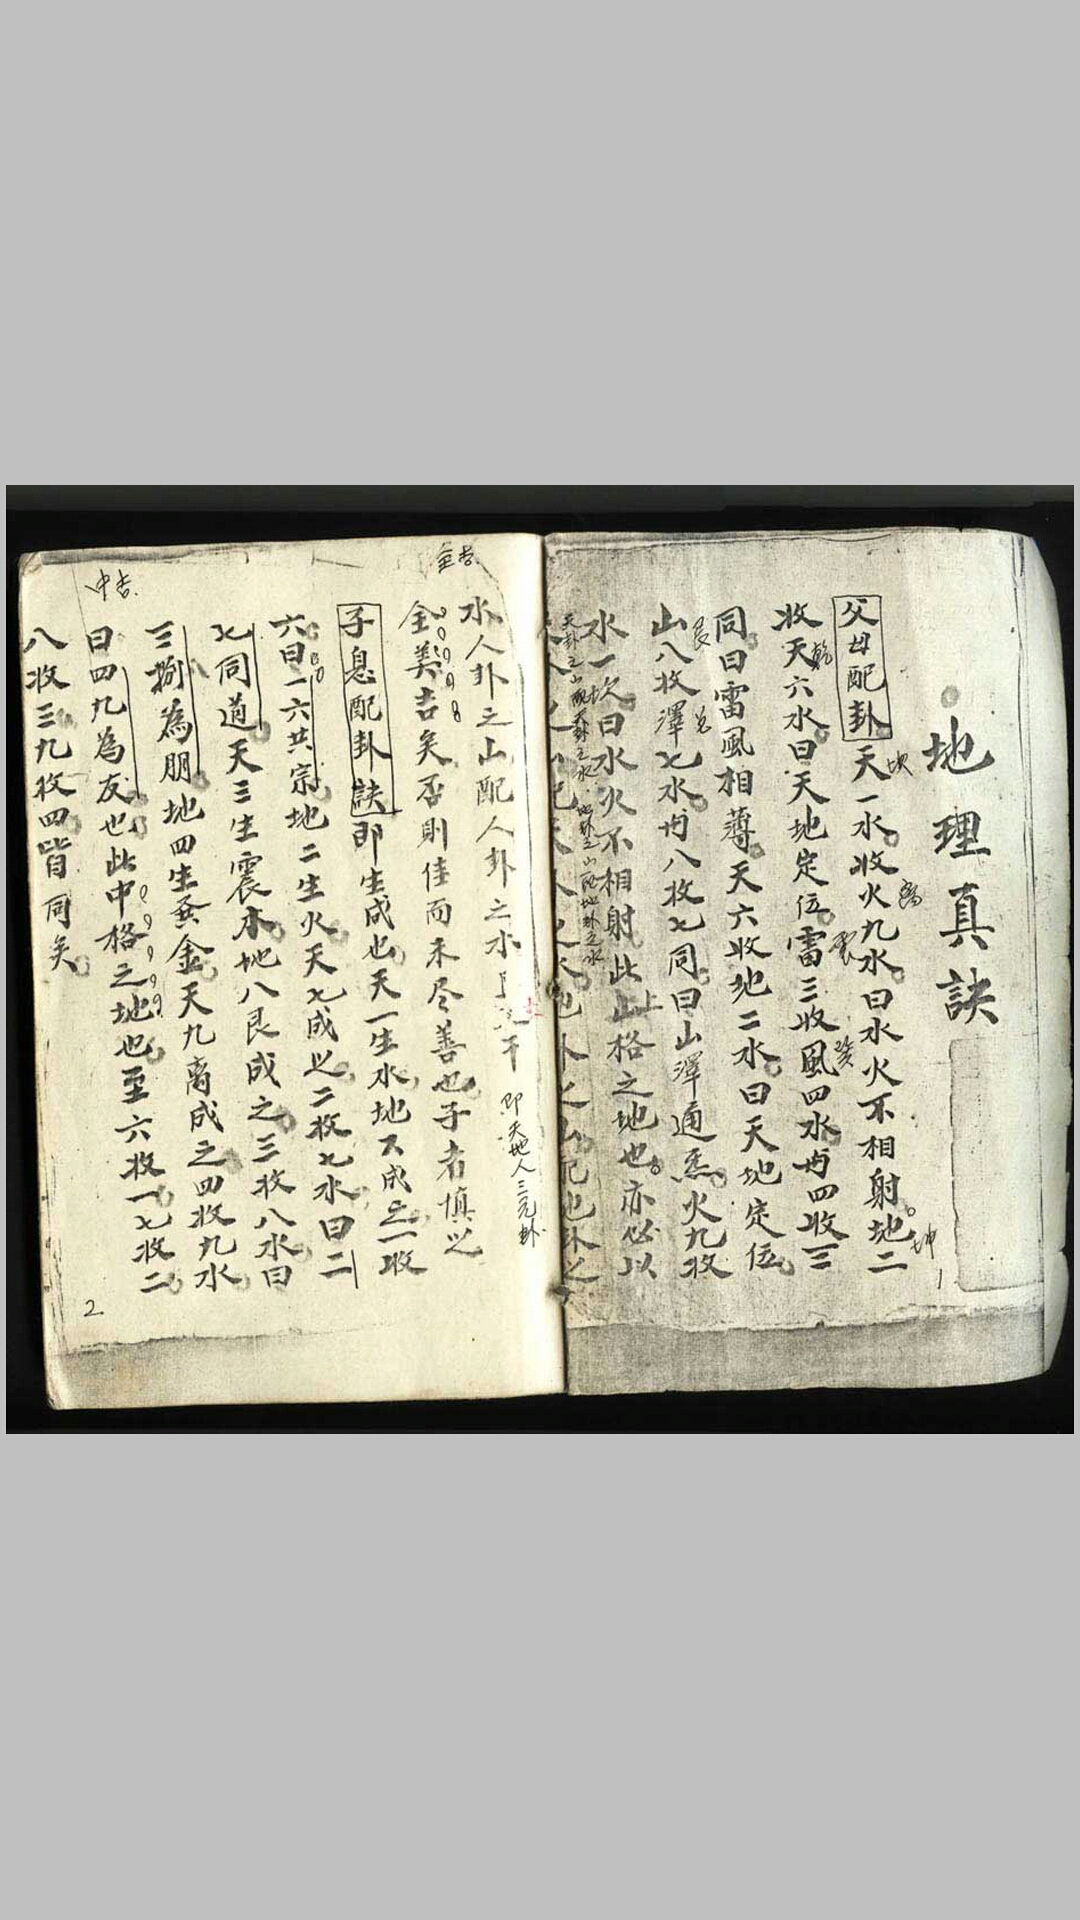 地理真訣
父母配卦 天一水收火九水曰水火不相射地二
坎
離
坤
收天六水曰天地定位雷三收風四水內四收三
乾
震
巽
同曰雷風相薄天六收地二水曰天地定位
山八收澤七水內八收七同曰山澤通炁火九收
艮
兌
水一次曰水火不相射此上格之地也亦必以
坎
上
天卦之山配天卦之水地卦之山配地卦之水
1
全吉
水人卦之山配人卦之水
即天地人三元卦
全美吉矣否則佳而未尽善也子者慎之
子息配卦訣 即生成也天一生水地六成之一收
六曰一六共宗地二生火天七成之二收七水曰二
七同道天三生震木地八艮成之三收八水曰
三捌為朋地四生金天九离成之四收九水
中吉
曰四九為友也此中格之地也至六收一七收二
八收三九收四皆同矣
2